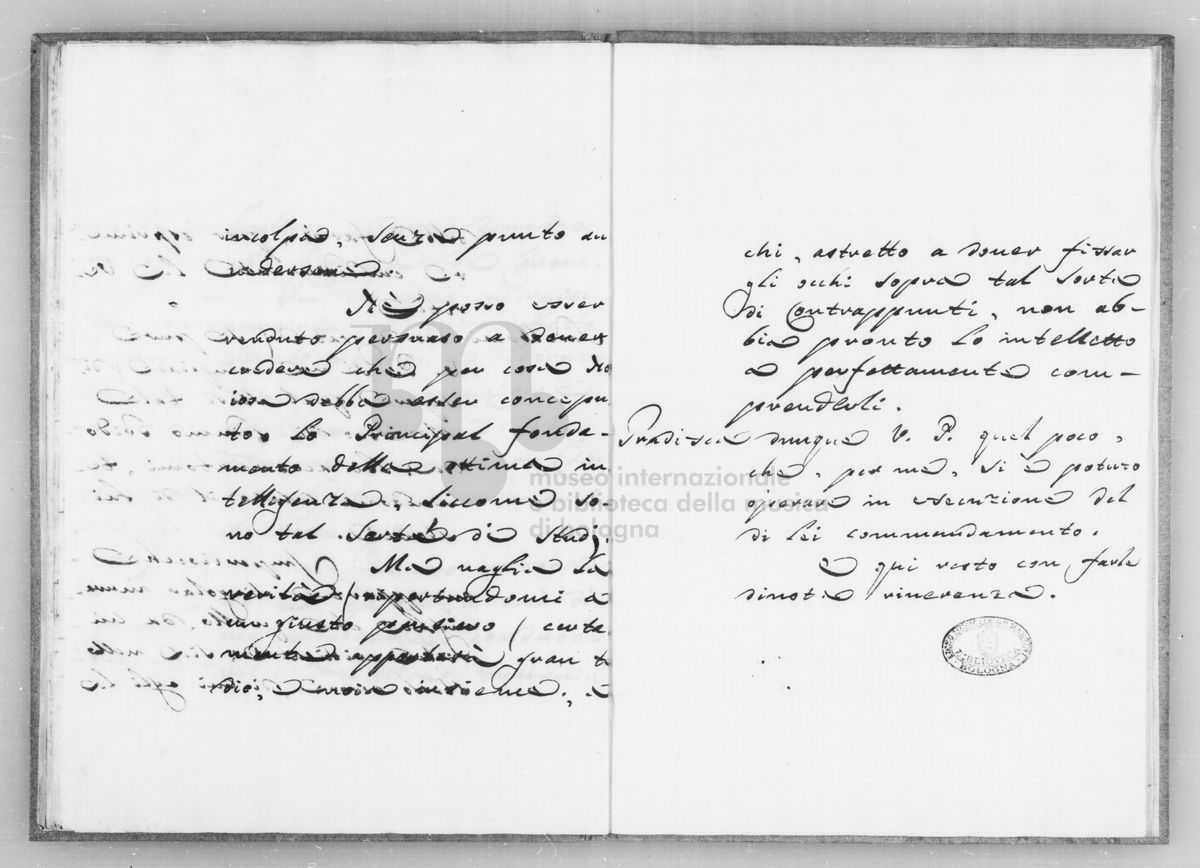 incolpa, senza punto au
vedersene
Nè posso esser
renduto persuaso a dover
credere che per cosa No
iosa debba esser concepu
to lo Principal fonda-
mento della ottima in
telligenza, siccome so-
no tal Sorta di Studj.
Ma vaglia la
verità (riportandomi a
un giusto pensiero) certa
mente apporterà gran te
dio, e noia insieme, e
chi, astretto a dover fissar
gli occhi sopra tal sorta
di Contrappunti, non ab-
bia pronto lo intelletto
a perfettamente com-
prenderli.
Gradisca dunque V. P. quel poco,
che, per me, si è potuto
operare in esecuzione del
di lei commandamento.
E qui resto con farle
divota riverenza.
museo internazionale
e biblioteca della musica
di bologna
BOLOGNA